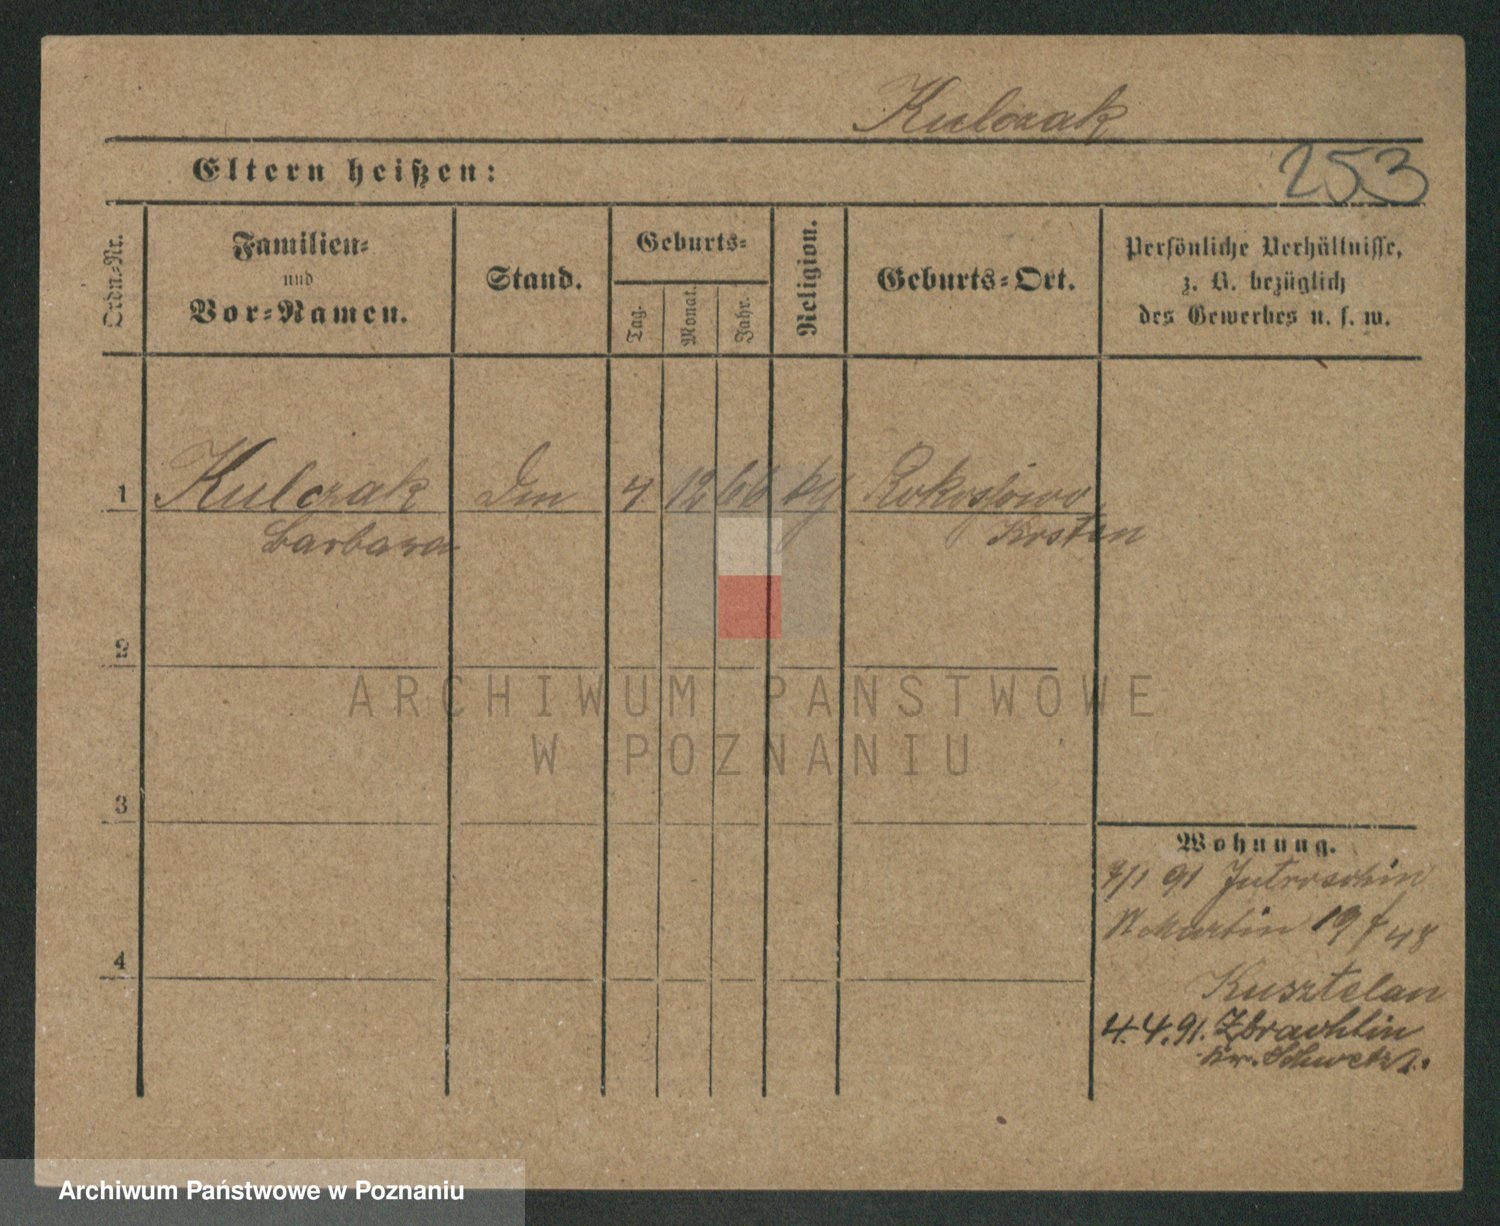 Kulczak
Eltern heißen:
253
Ordn.-Nr.
Familien-
und
Vor-Namen.
Stand.
Geburts-
Tag.
Monat.
Jahr.
Religion.
Geburts-Ort.
Persönliche Verhältnisse,
z. B. bezüglich
des Gewerbes u. s. w.
1 Kulczak 4 12 66 Rokossowo
Barbara Kosten
2
3
4
Wohnung.
91 Jutroschin
Martin 19
Kusztelan
4.4.91. Zbrachlin
Kr. Schwetz.
ARCHIWUM PAŃSTWOWE
W POZNANIU
Archiwum Państwowe w Poznaniu